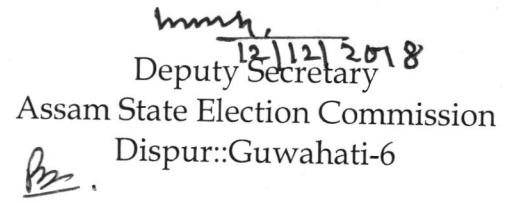 12/12/2018
Deputy Secretary
Assam State Election Commission
Dispur::Guwahati-6